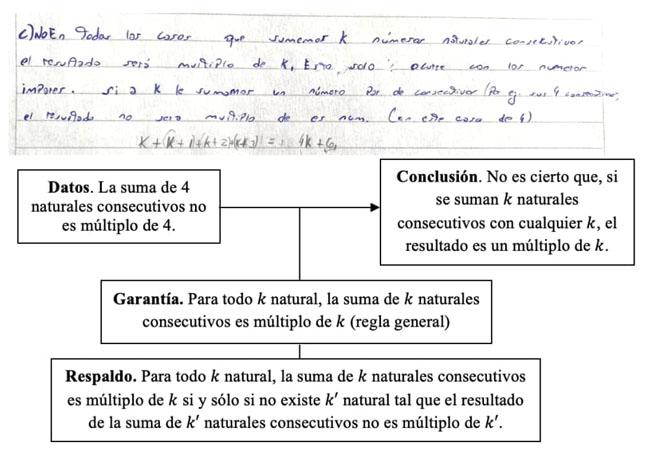 c) No En todos los casos que sumemos k números naturales consecutivos
el resultado será multiplo de K, Esto solo ocurre con los numeros
impares. Si a K le sumamos un número Par de consecutivos (Po ej. sus 4 consecutivos,
el resultado no sera multiplo de es num. (en este caso de 4)
K+(k+1)+(k+2)+(k+3) = 4k+6,
Datos. La suma de 4
naturales consecutivos no
es múltiplo de 4.
Conclusión. No es cierto que, si
se suman k naturales
consecutivos con cualquier k, el
resultado es un múltiplo de k.
Garantía. Para todo k natural, la suma de k naturales
consecutivos es múltiplo de k (regla general)
Respaldo. Para todo k natural, la suma de k naturales consecutivos
es múltiplo de k si y sólo si no existe k′ natural tal que el resultado
de la suma de k′ naturales consecutivos no es múltiplo de k′.